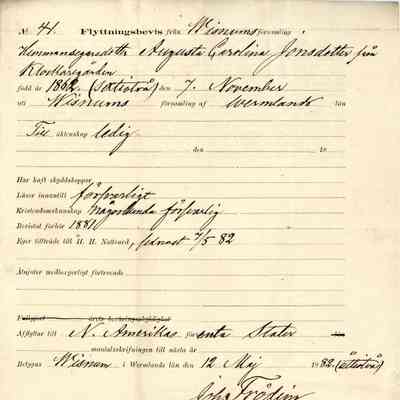 № 41. Flyttningsbevis från Wisnums församling
Hemmansegaredotter Augusta Carolina Jonsdotter från
Klockaregården
född år 1862 (sextiotvå) den 7. November
uti Wisnums församling af Wermlands län
Till äktenskap ledig
den 18
Har haft skyddskoppor
Läser innantill försvarligt
Kristendomskunskap någorlunda försvarlig
Bevistat förhör 1881
Eger tillträde till H. H. Nattvard, senast 7/5 82
Åtnjuter medborgerligt förtroende
Afflyttar till N. Amerikas förenta Stater län
mantalsskrifningen till nästa år
Betygas Wisnum i Wermlands län den 12 Maj 1882. (åttiotvå)
Joh. Frödin